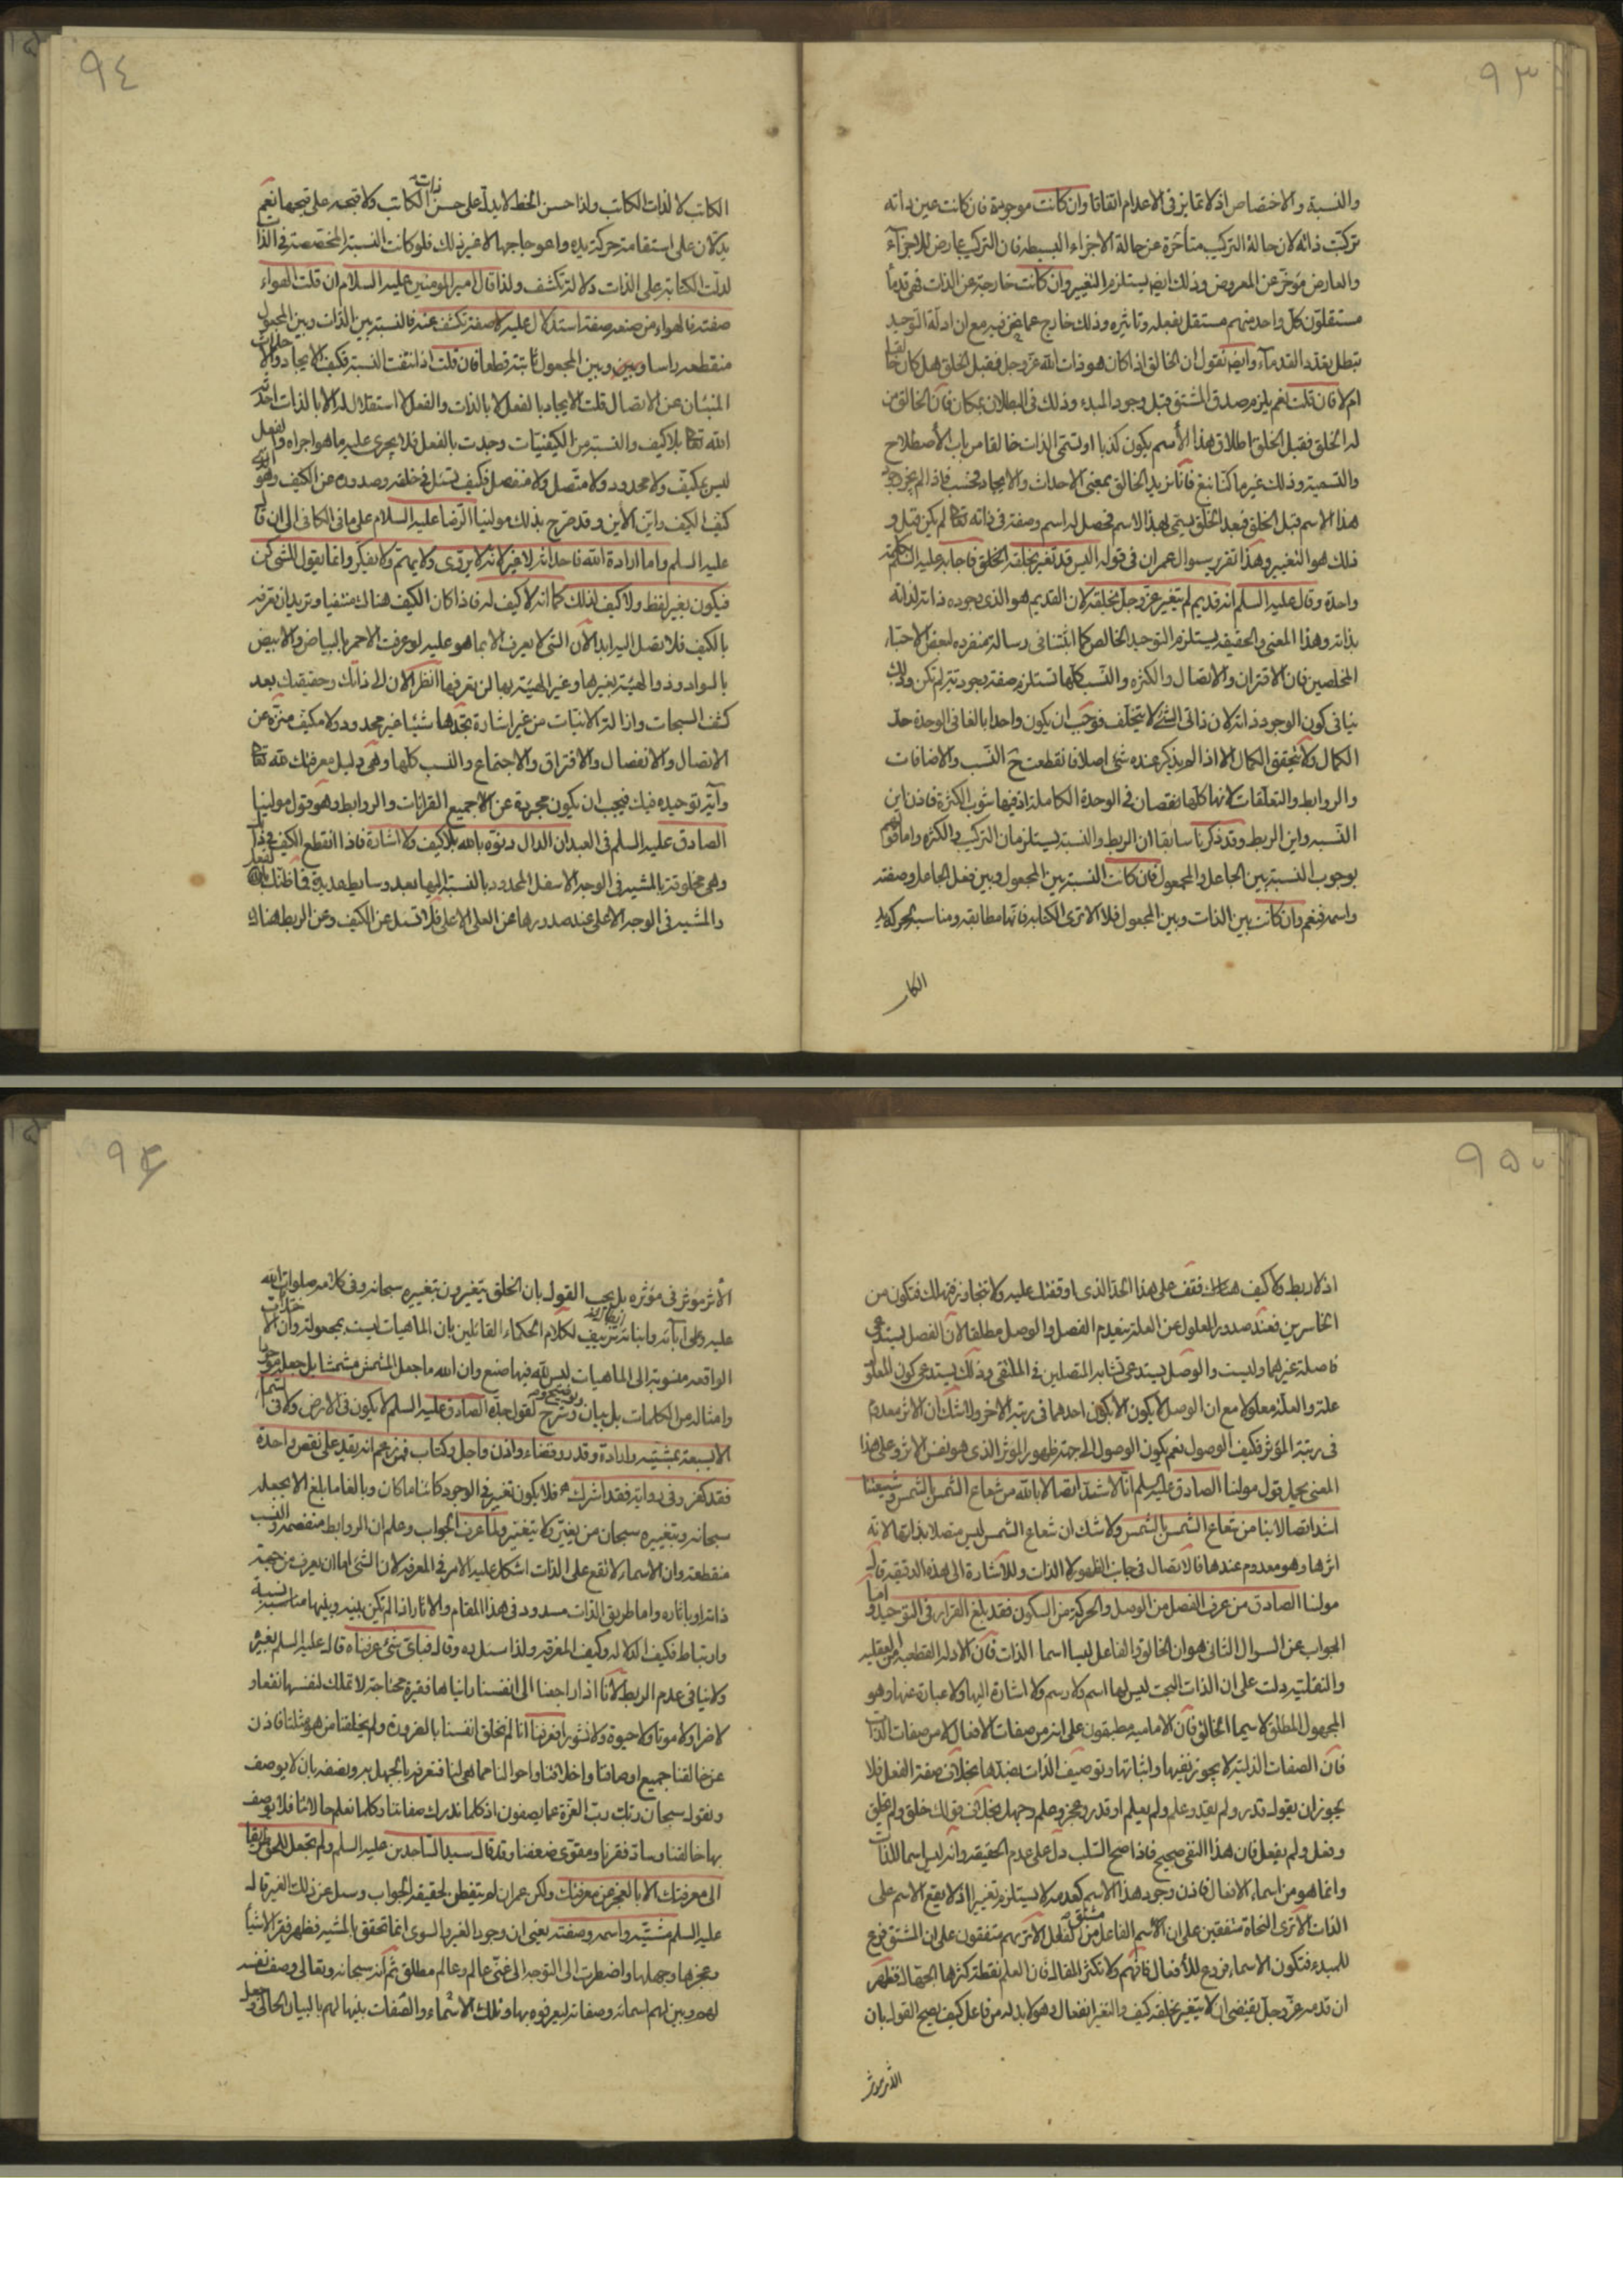 ٩٣
والنسبة والاختصاص اذ لا تمايز فى الاعدام اتفاقا وان كانت موجودة فان كانت عين ذاته
تركبت ذاته لان حالة التركيب متأخرة عن حالة الاجزاء البسيطة فان التركيب عارض للاجزآء
والعارض مؤخر عن المعروض وذلك ايض يستلزم التغيير وان كانت خارجة عن الذات فهى قدمآ
مستقلون كل واحد منهم مستقل بفعله وتاثيره وذلك خارج عما نحن فيه مع ان ادلة التوحيد
تبطل تعدد القدمآء وايض نقول ان الخالق اذا كان هو ذات الله عز وجل فقبل الخلق هل كان خالقا
ام لا فان قلت نعم يلزم صدق المشتق قبل وجود المبدء وذلك فى البطلان بمكان فان الخالق من
له الخلق فقبل الخلق اطلاق هذا الأسم يكون كذبا او تسمى الذات خالقا من باب الأصطلاح
والتسمية وذلك غير ما كنا نبغ فانا نريد الخالق بمعنى الاحداث والايجاد فحسب فاذا لم يجز وجود
هذا الاسم قبل الخلق فبعد الخلق يسمى بهذا الاسم فحصل له اسم وصفة فى ذاته تعالى لم يكن قبل و
ذلك هو التغيير وهذا تقرير سوال عمران فى قوله اليس قد تغير بخلقه الخلق فاجابه عليه السلم بكلمة
واحدة وقال عليه السلم انه قديم لم يتغير عز وجل بخلقه لان القديم هو الذى وجوده ذاته لذاته
بذاته وهذا المعنى والحقيقه يستلزم التوحيد الخالص كما اثبتنا فى رسالة منفرده لبعض الاحبآء
المخلصين فان الاقتران والاتصال والكثرة والنسب كلها تستلزم صفة وجودية لم تكن وذلك
ينافى كون الوجود ذاته لان ذاتى الشئ لا يتخلف فوجب ان يكون واحدا بالغا فى الوحدة حد
الكمال ولا يتحقق الكمال الا اذا لم يذكر عنده شئ اصلا فانقطعت ح النسب والاضافات
والروابط والتعلقات لانها كلها نقصان فى الوحدة الكاملة اذ فيها شوب الكثرة فاذن اين
النسبه واين الربط وقد ذكرنا سابقا ان الربط والنسبة يستلزمان التركيب والكثره واما قولهم
بوجوب النسبة بين الجاعل والمجعول فان كانت النسبة بين المجعول وبين فعل الجاعل وصفته
واسمه فنعم وان كانت بين الذات وبين المجعول فلا الا ترى الكتابه فانها مطابقه ومناسبه لحركة يد
الكا
٩٤
الكاتب لا لذات الكاتب ولذا حسن الخط لا يدل على حسن ذات الكاتب ولا قبحه على قبحها نعم
يدلان على استقامة حركة يده واعوجاجها لا غير ذلك فلو كانت النسبة المخصصة فى الذات
لدلت الكتابة على الذات دلالة تكشف ولذا قال امير المؤمنين عليه السلام ان قلت الهواء
صفته فالهواء من صنعه صفة استدلال عليه لا صفة تكشف عنه فالنسبة بين الذات وبين المجعول
منقطعه راسا وبين وبين المجعول ثابتة قطعا فان قلت اذا انتفت النسبة فكيف الايجاد والاحداث
المنبئان عن الاتصال قلت الايجاد بالفعل لا بالذات والفعل لا استقلال له الا بالذات احدثه
الله تعالى بلا كيف والنسبة من الكيفيات وجدت بالفعل فلا يجرى عليه ما هو اجراه والفعل
ليس بمكيف ولا محدود ولا متصل ولا منفصل فكيف تسئل فى خلقه وصدوره عن الكيف وهو الذى
كيف الكيف واين الأين وقد صرح بذلك مولينا الرضا عليه السلام على ما فى الكافى الى ان قال
عليه السلم واما ارادة الله فاحداثه لا غير لانه لا يروى ولا يهتم ولا يفكر وانما يقول للشئ كن
فيكون بغير لفظ ولا كيف لذلك كما انه لا كيف له فاذا كان الكيف هناك منتفيا وتريد ان تعرفه
بالكيف فلا تصل اليه ابدا لان الشئ لا يعرف الا بما هو عليه لو عرفت الاحمر بالبياض والابيض
بالسواد وذو الهيئة بغيرها وغير الهيئة بها لن تعرفها انظر الان الى ذاتك وحقيقتك بعد
كشف السبحات وازالة الانيات من غير اشارة تجدها شيئا غير محدود ولا مكيف منزه عن
الاتصال والانفصال والافتراق والاجتماع والنسب كلها وهى دليل معرفتك لله تعالى
وآية توحيده فيك فيجب ان يكون مجردة عن الاجميع القرانات والروابط وهو قول مولينا
الصادق عليه السلم فى العبد ان الدال دنوه بالله بلا كيف ولا اشارة فاذا انقطع الكيف فى ذاتك
وهى مخلوقة بالمشية فى الوجه الاسفل المحدود بالنسبة اليها بعد وسايط عديدة فما ظنك بالفعل
والمشية فى الوجه الاعلى عند صدورها عن العلى الاعلى فلا تسئل عن الكيف وعن الربط هناك
٩٥
اذ لا ربط ولا كيف هناك فقف على هذا الحد الذى اوقفتك عليه ولا تتجاوز فتهلك فتكون من
الخاسرين فعند صدور المعلول عن العلة ينعدم الفصل والوصل مطلقا لان الفصل يستدعى
فاصلة غيرهما وليست والوصل يستدعى تشابه المتصلين فى الملتقى وذلك يستدعى كون المعلول
علة والعلة معلولا مع ان الوصل لا يكون الا بكون احدهما فى رتبة الاخر ولا شك ان الاثر معدوم
فى رتبة المؤثر فكيف الوصول نعم يكون الوصول الى جهة ظهور المؤثر الذى هو نفس الاثر وعلى هذا
المعنى يحمل قول مولنا الصادق عليه السلم انا لاشد اتصالا بالله من شعاع الشمس بالشمس وشيعتنا
اشد اتصالا بنا من شعاع الشمس بالشمس ولا شك ان شعاع الشمس ليس متصلا بذاتها لانه
اثرها وهو معدوم عندها فالاتصال فى جانب الظهور لا الذات وللاشارة الى هذه الدقيقه قال
مولنا الصادق من عرف الفصل من الوصل والحركة من السكون فقد بلغ القرار فى التوحيد واما
الجواب عن السوال الثانى هو ان الخالق والفاعل ليسا اسما الذات فان الادلة القطعيه من العقليه
والنقليه دلت على ان الذات البحت ليس لها اسم ولا رسم ولا اشارة اليها ولا عبارة عنها وهو
المجهول المطلق لا سيما الخالق فان الاماميه مطبقون على انه من صفات الافعال لا من صفات الذات
فان الصفات الذاتية لا يجوز نفيها واثباتها وتوصيف الذات بضدها بخلاف صفة الفعل فلا
يجوز ان يقول قدر ولم يقدر وعلم ولم يعلم او قدر وعجز وعلم وجهل بخلاف قولك خلق ولم يخلق
وفعل ولم يفعل فان هذا النفى صحيح فاذا صح السلب دل على عدم الحقيقه وانه ليس اسما للذات
وانما هو من اسماء الافعال فاذن وجود هذا الاسم كعدمه لا يستلزم تغييرا اذ لا يقع الاسم على
الذات الا ترى النحاة متفقين على ان الاسم الفاعل مشتق من الفعل الا تريهم متفقون على ان المشتق فرع
للمبدء فتكون الاسماء فروع للأفعال فافهم ولا تكثر المقال فان العلم نقطة كثرها الجهال فظهر
ان قدمه عز وجل يقتضى ان لا يتغير بخلقه كيف والتغير انفعال وهو لا بد له من فاعل كيف يصح القول بان
الأثر مؤثر
٩٤
الأثر مؤثر فى مؤثره بل يجب القول بان الخلق يتغيرون بتغييره سبحانه وفى كلامه صلوات الله
عليه وعلى آبائه وابنائه تزييف لكلام الحكماء القائلين بان الماهيات ليست بمجعولة وان الاختلافات
الواقعه منسوبة الى الماهيات ليس لله فيها صنع وان الله ما جعل المشمش مشمشا بل جعله موجودا
وامثاله من الكلمات بل بيان وشرح وتوضيح لقول جده الصادق عليه السلم لا يكون فى الارض ولا فى السماء
الا بسبعة بمشيته وارادة وقدر وقضاء واذن واجل وكتاب فمن زعم انه يقدر على نقص واحدة
فقد كفر وفى رواية فقد اشرك فلا يكون تغيير فى الوجود كائنا ما كان وبالغا ما بلغ الا بجعله
سبحانه وتغييره سبحان من يغير ولا يتغير ولما عرف الجواب وعلم ان الروابط منفصمة والنسب
منقطعه وان الاسماء لا تقع على الذات اشكل عليه الامر فى المعرفه لان الشئ اما ان يعرف من جهة
ذاته او باثاره واما طريق الذات مسدود فى هذا المقام والاثار اذا لم تكن بينه وبينها مناسبة ونسبة
وارتباط فكيف الدلالة وكيف المعرفه ولذا سئله وقال فباى شئ عرفناه قال عليه السلم بغيره
ولا ينافى عدم الربط لأنا اذا راجعنا الى انفسنا رايناها فقيرة محتاجة لا تملك لنفسها نفعا و
لا ضرا ولا موتا ولا حيوة ولا نشورا فعرفنا انا لم نخلق انفسنا بالضرورة ولم يخلقنا من هو مثلنا فاذن
عز خالقنا جميع اوصافنا واخلاقنا واحوالنا عما هى لنا فنعرفه بالجهل به ونصفه بان لا يوصف
ونقول سبحان ربك رب العزة عما يصفون اذ كلما ندرك صفاتنا وكلما نعلم حالاتنا فلا يوصف
بها خالقنا وساد فقرنا ومقوى ضعفنا وقد قال سيد الساجدين عليه السلم ولم تجعل للخلق طريقا
الى معرفتك الا بالعجز عن معرفتك ولكن عمران لم يتفطن لحقيقة الجواب وسئل عن ذلك الغير قال
عليه السلم مشيته واسمه وصفته يعنى ان وجود الغير والسوى انما تحقق بالمشية فظهر فقر الاشيآء
وعجزها وجهلها واضطرت الى التوجه الى غنى عالم وعالم مطلق ثم انه سبحانه وتعالى وصف نفسه
لهم وبين لهم اسمائه وصفاته ليعرفوه بها وتلك الاسمآء والصفات بينها لهم بالبيان الحالى وجعل